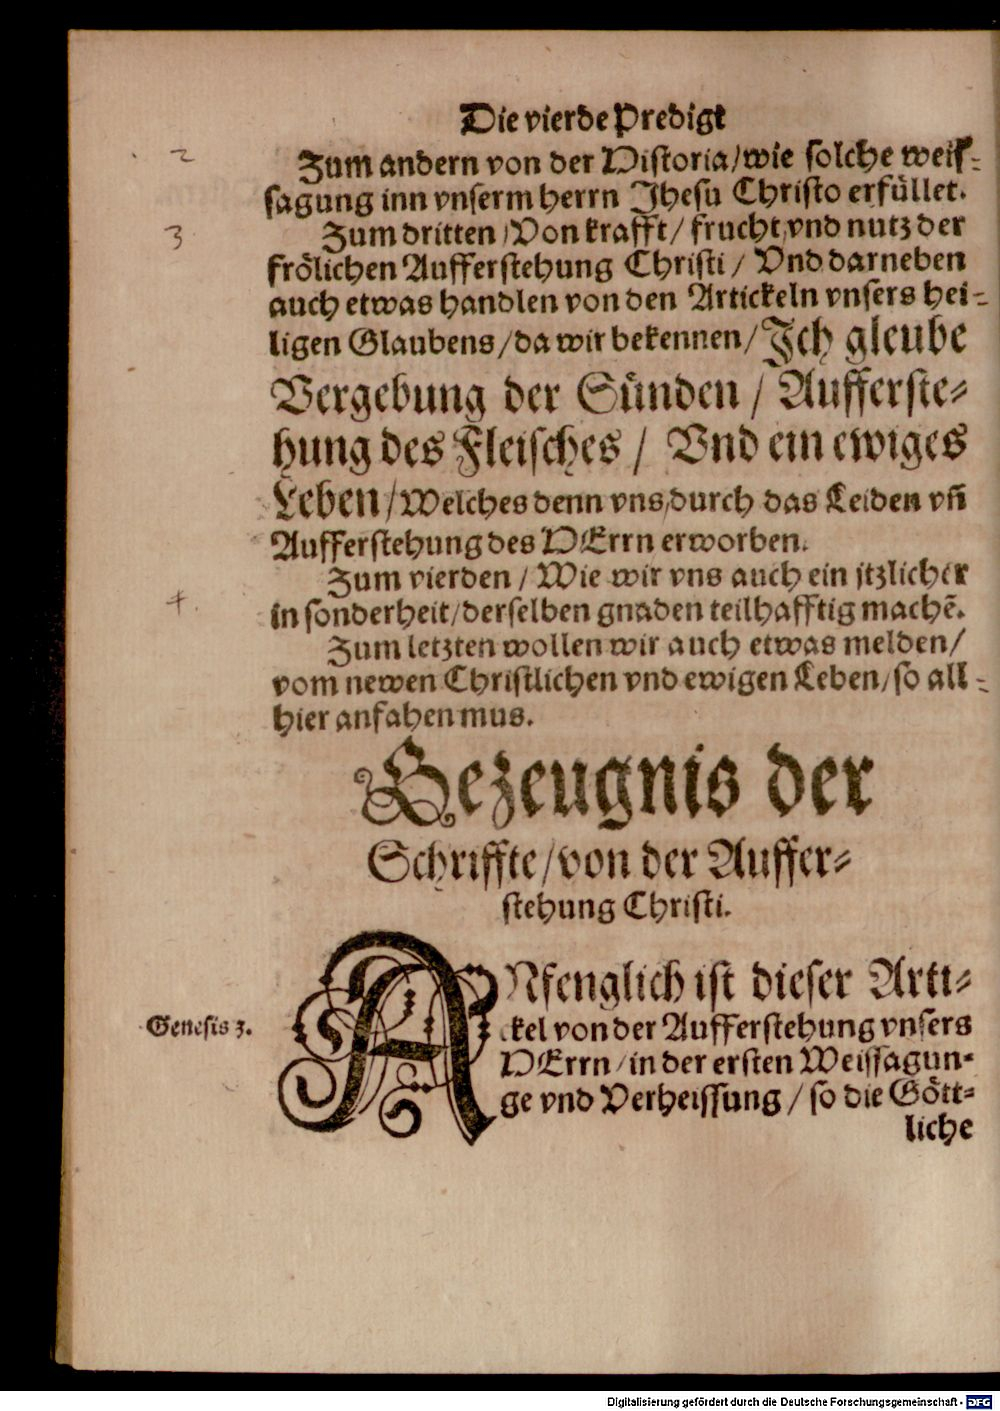 Die vierde Predigt
2
Zum andern von der Historia/wie solche weis-
sagung inn vnserm herrn Jhesu Christo erfüllet.
3
Zum dritten/Von krafft/ frucht,vnd nutz der
frölichen Aufferstehung Christi / Vnd darneben
auch etwas handlen von den Artickeln vnsers hei-
ligen Glaubens/da wir bekennen/Ich gleube
Vergebung der Sünden / Aufferste-
hung des Fleisches / Vnd ein ewiges
Leben/Welches denn vns,durch das Leiden vñ
Aufferstehung des HErrn erworben.
Zum vierden / Wie wir vns auch ein jtzlicher
4.
in sonderheit/derselben gnaden teilhafftig machẽ.
Zum letzten wollen wir auch etwas melden/
vom newen Christlichen vnd ewigen Leben/so all-
hier anfahen mus.
Gezeugnis der
Schriffte/von der Auffer-
stehung Christi.
ANfenglich ist dieser Arti-
Genesis 3.
ckel von der Aufferstehung vnsers
HErrn/in der ersten Weissagun-
ge vnd Verheissung / so die Gött-
liche
Digitalisierung gefördert durch die Deutsche Forschungsgemeinschaft - DFG